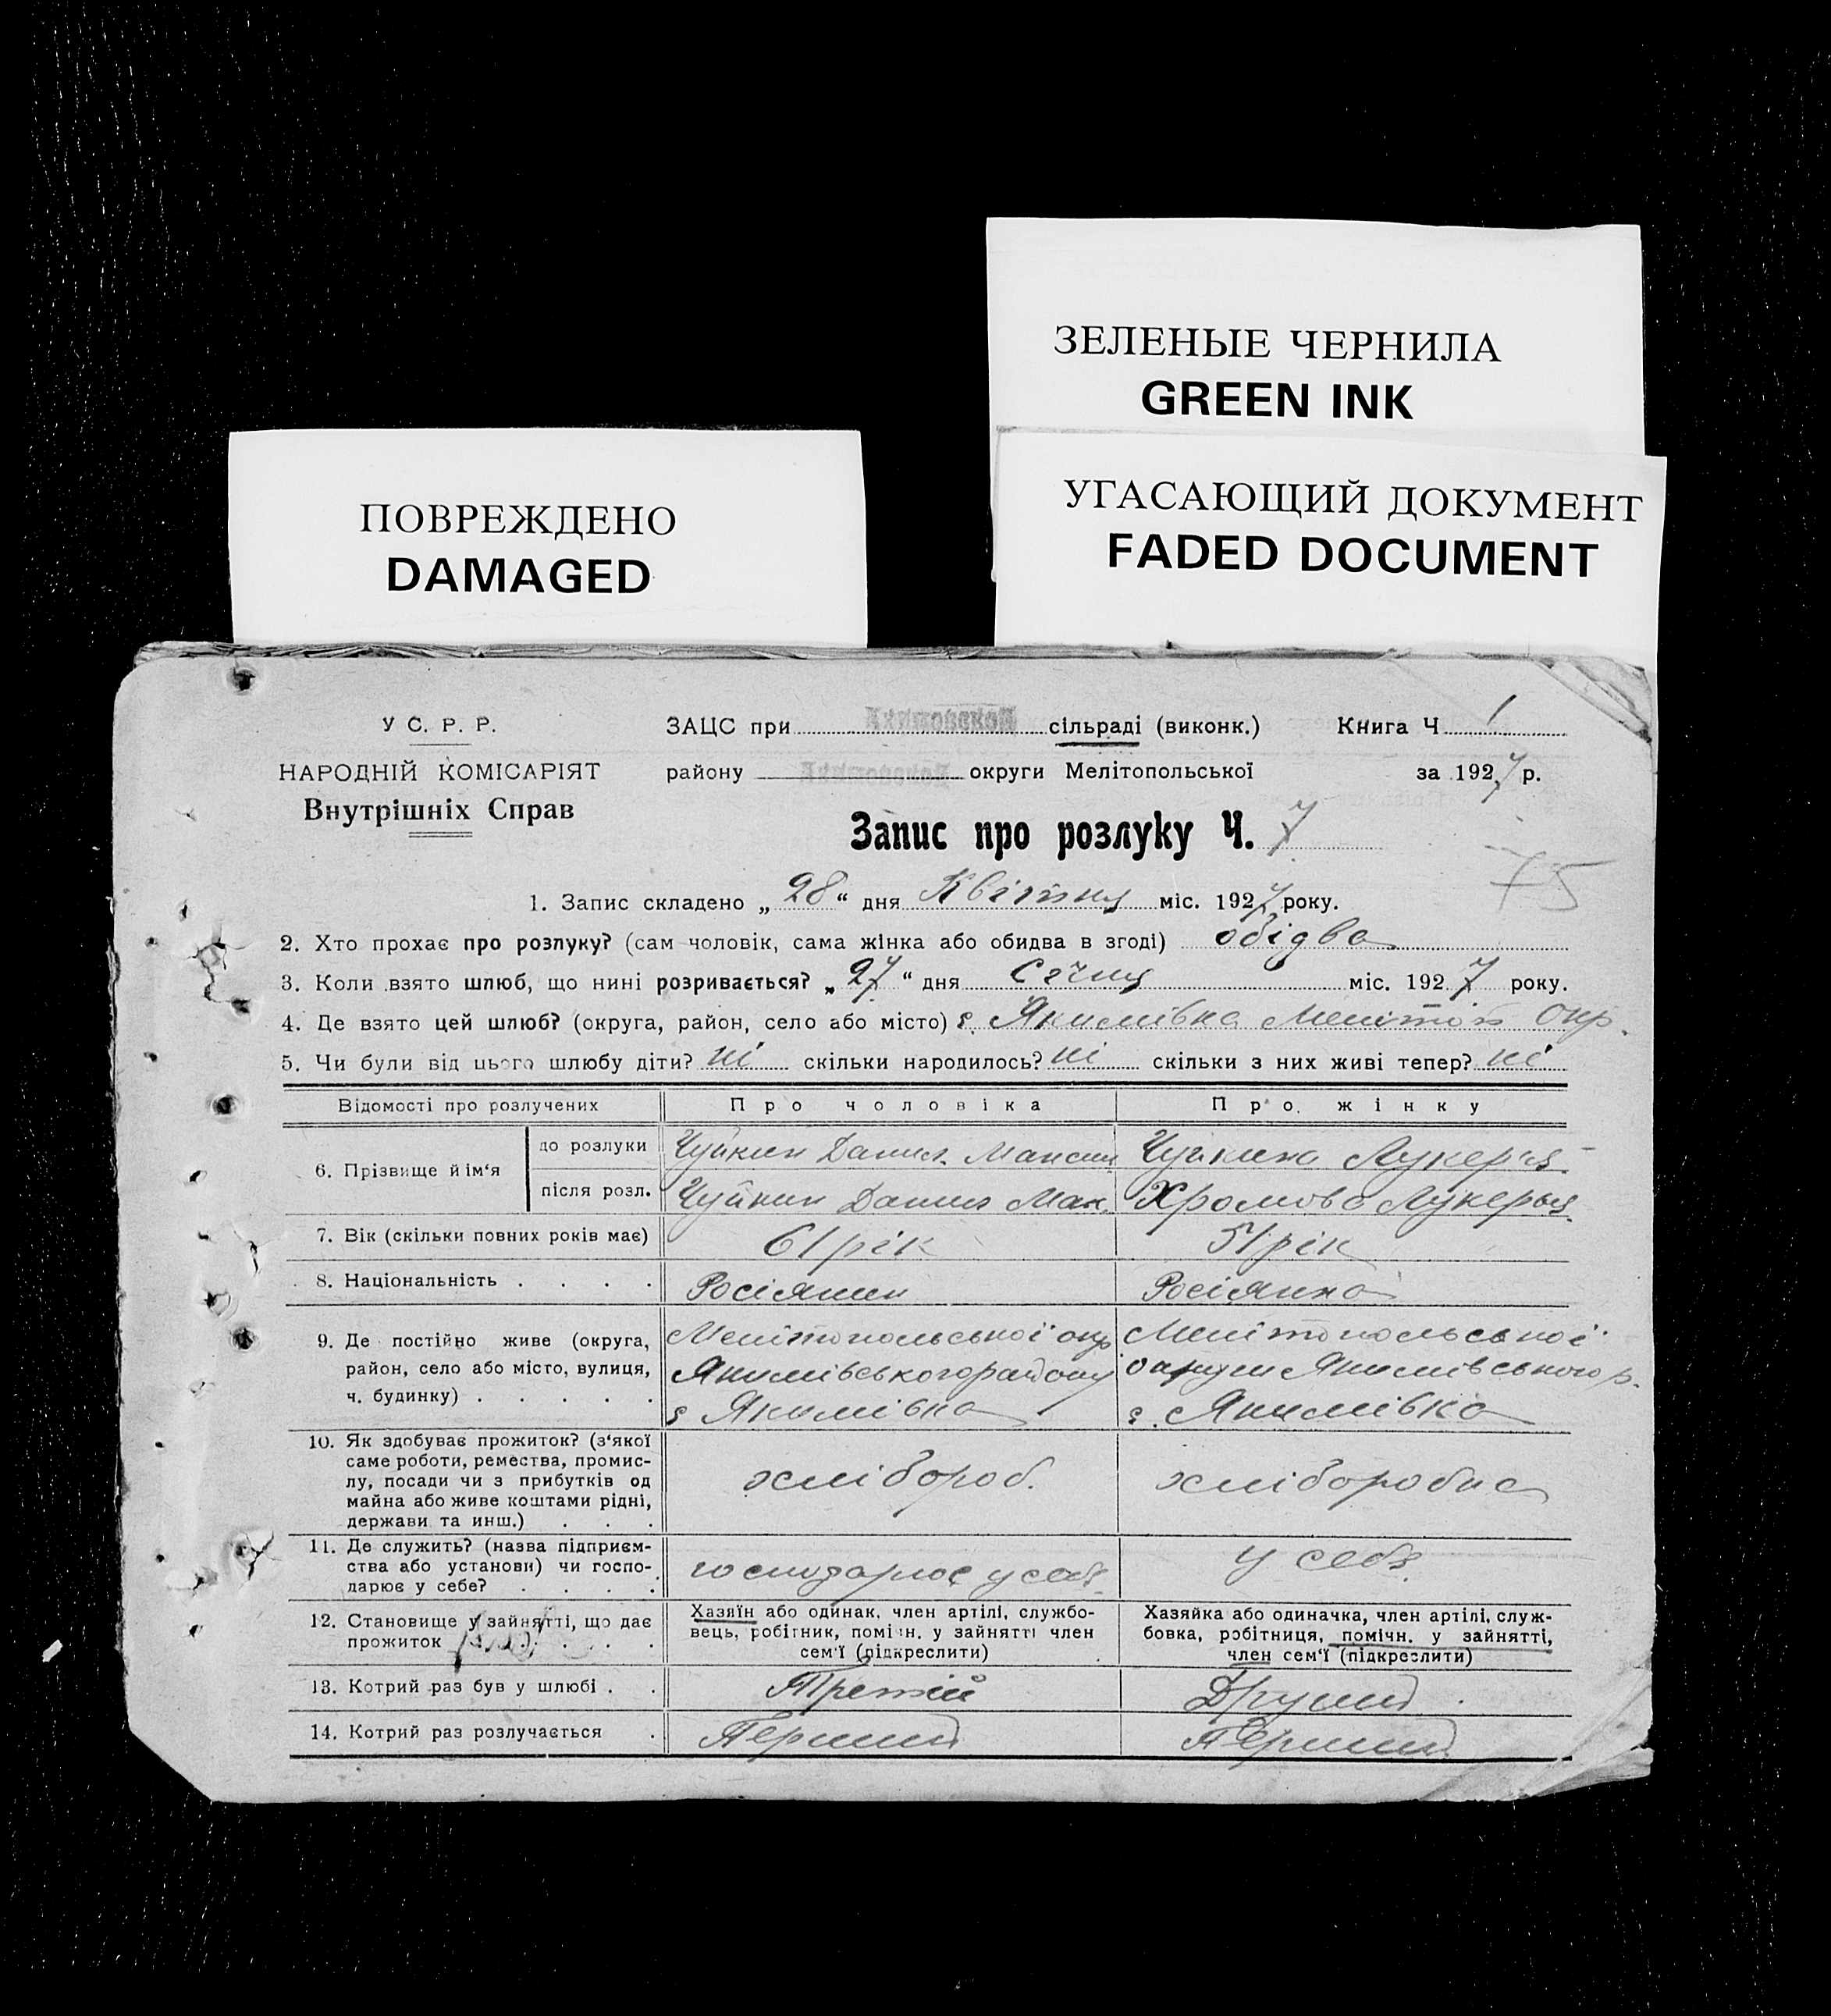 ЗЕЛЕНЫЕ ЧЕРНИЛА
GREEN INK
УГАСАЮЩИЙ ДОКУМЕНТ
FADED DOCUMENT
ПОВРЕЖДЕНО
DAMAGED
У С. Р. Р.
НАРОДНІЙ КОМІСАРІЯТ
Внутрішніх Справ
ЗАЦС при сільраді (виконк.) Книга Ч 1
району округи Мелітопольської за 1927 р.
Запис про розлуку Ч. 7
75
1. Запис складено „28“ дня Квітня міс. 1927 року.
2. Хто прохає про розлуку? (сам чоловік, сама жінка або обидва в згоді) обідва
3. Коли взято шлюб, що нині розривається? „27“ дня Січня міс. 1927 року.
4. Де взято цей шлюб? (округа, район, село або місто) с. Якимівка Меліто Окр.
5. Чи були від цього шлюбу діти? ні скільки народилось? ні скільки з них живі тепер? ні
Відомості про розлучених Про чоловіка Про жінку
6. Прізвище й ім‘я
до розлуки Чуйкин Данил Максим Чуйкина Лукер‘я
після розл. Чуйкин Данил Мак. Хромова Лукерья
7. Вік (скільки повних років має) 61 рік 51 рік
8. Національність . . . . Росіянин Росіянка
9. Де постійно живе (округа, район, село або місто, вулиця, ч. будинку) . . . . .
Мелітопольської окр
Якимівського району
с Якимівка
Мелітопольської
округи Якимівського р.
с. Якимівка
10. Як здобуває прожиток? (з‘якої
саме роботи, ремества, промис-
лу, посади чи з прибутків од
майна або живе коштами рідні,
держави та инш.) . . .
хлібороб.
хліборобка
11. Де служить? (назва підприєм-
ства або установи) чи госпо-
дарює у себе? . . . .
господарює у себе
у себе.
12. Становище у зайнятті, що дає
прожиток . . . . .
Хазяїн або одинак, член артілі, службо-
вець, робітник, помічн. у зайнятті член
сем‘ї (підкреслити)
Хазяйка або одиначка, член артілі, служ-
бовка, робітниця, помічн. у зайнятті,
член сем‘ї (підкреслити)
13. Котрий раз був у шлюбі . . Третій Другий
14. Котрий раз розлучається . Перший Перший